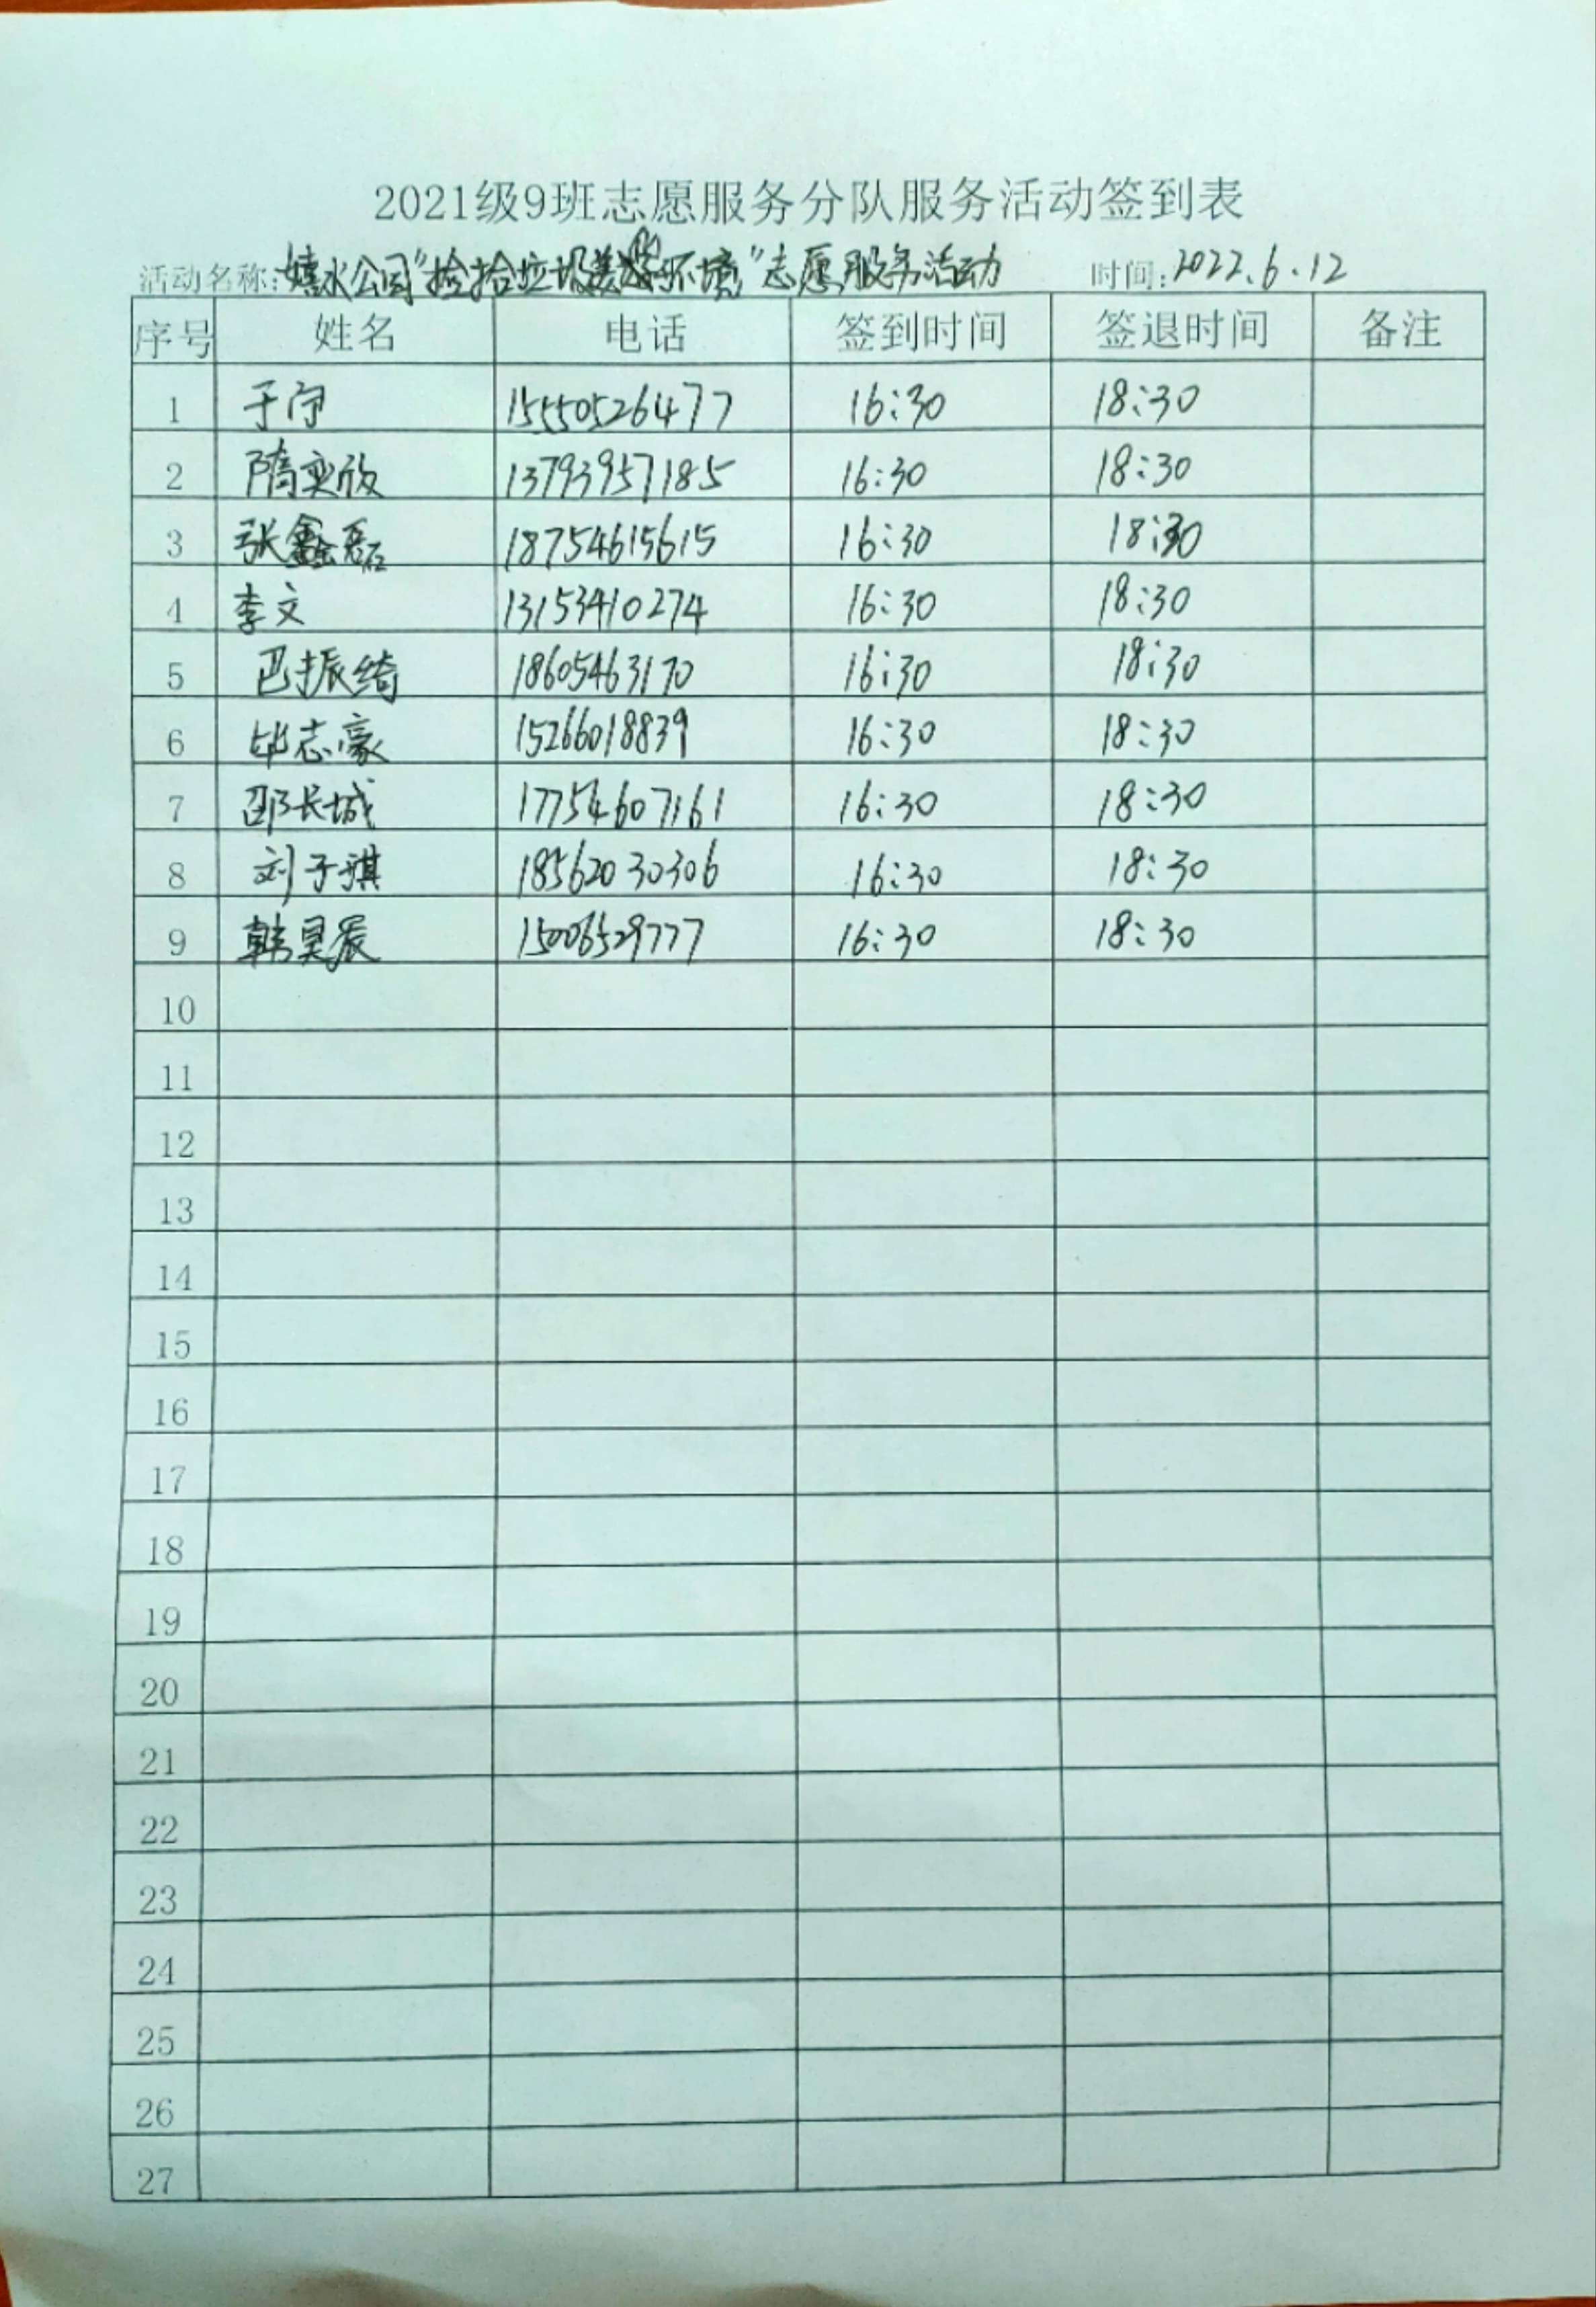 2021级9班志愿服务分队服务活动签到表
活动名称:嬉水公园"捡拾垃圾美化环境"志愿服务活动 时间:2022.6.12
序号 姓名 电话 签到时间 签退时间 备注
1 于宁 15550526477 16:30 18:30
2 隋奕放 13793957185 16:30 18:30
3 张鑫磊 18754615615 16:30 18:30
4 李文 13153410274 16:30 18:30
5 巴振绮 18605463170 16:30 18:30
6 毕志豪 15266018839 16:30 18:30
7 邵长城 17754607161 16:30 18:30
8 刘子祺 18562030306 16:30 18:30
9 韩昊辰 15006529777 16:30 18:30
10
11
12
13
14
15
16
17
18
19
20
21
22
23
24
25
26
27